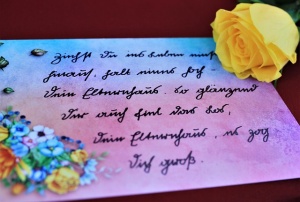 Ziehst Du ins Leben auch
hinaus, halt immer hoch
Dein Elternhaus. So glänzend
Dir auch fiel das Los,
Dein Elternhaus, es zog
Dich groß.